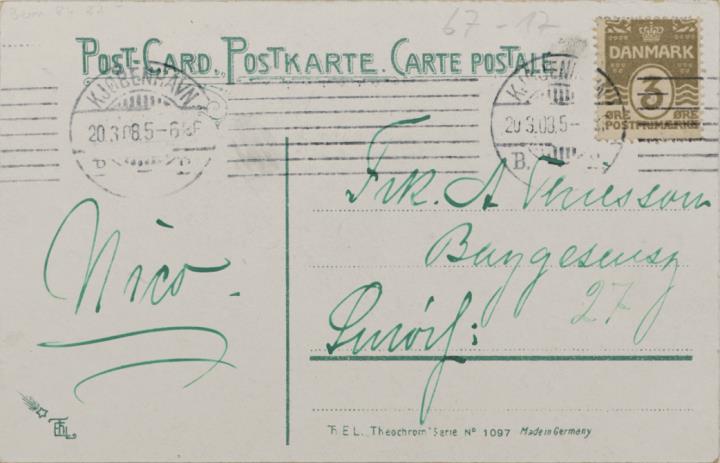 67-17
POST-CARD. POSTKARTE. CARTE POSTALE
KJØBENHAVN
20.3.08.5-6
KJØBENHAVN
20.3.08.5-
B.
DANMARK
3
ØRE ØRE
POSTFRIMÆRKE
Frk. A
Baggesensg
27
Nico.
Th. E. L. "Theochrom" Serie Nº 1097 Made in Germany